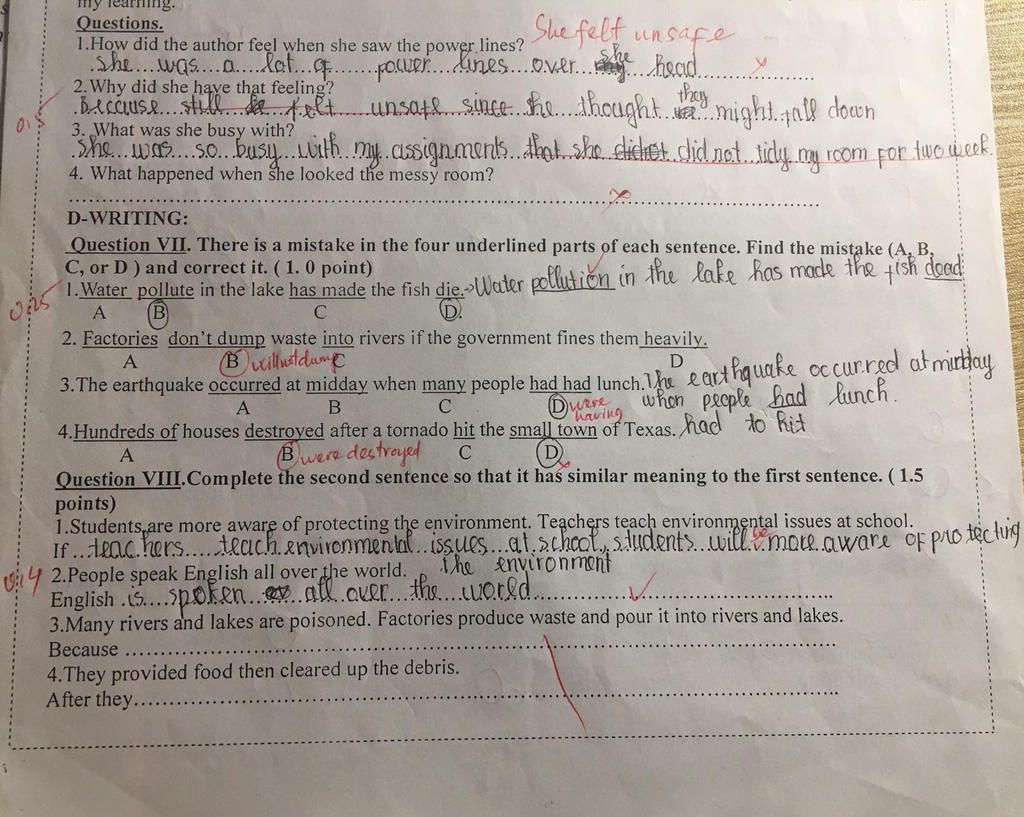 my learning.
Questions.
She felt unsafe
1.How did the author feel when she saw the power lines?
She was a lot of power lines over she head
2.Why did she have that feeling?
Because still felt unsafe since she thought they might fall down
0.5
3. What was she busy with?
She was so busy with my assignments that she did not tidy my room for two week.
4. What happened when she looked the messy room?
D-WRITING:
Question VII. There is a mistake in the four underlined parts of each sentence. Find the mistake (A, B,
C, or D ) and correct it. ( 1. 0 point)
0.25
1.Water pollute in the lake has made the fish die.->Water pollution in the lake has made the fish dead.
A B C D.
2. Factories don't dump waste into rivers if the government fines them heavily.
A B will not dump C D
3.The earthquake occurred at midday when many people had had lunch. The earthquake occurred at midday
when people had lunch.
A B C D were having
4.Hundreds of houses destroyed after a tornado hit the small town of Texas. had to hit
A B were destroyed C D
Question VIII.Complete the second sentence so that it has similar meaning to the first sentence. ( 1.5
points)
1.Students are more aware of protecting the environment. Teachers teach environmental issues at school.
If teachers teach environmental issues at school, students will be more aware of protecting
the environment
0.4
2.People speak English all over the world.
English is spoken all over the world
3.Many rivers and lakes are poisoned. Factories produce waste and pour it into rivers and lakes.
Because
4.They provided food then cleared up the debris.
After they